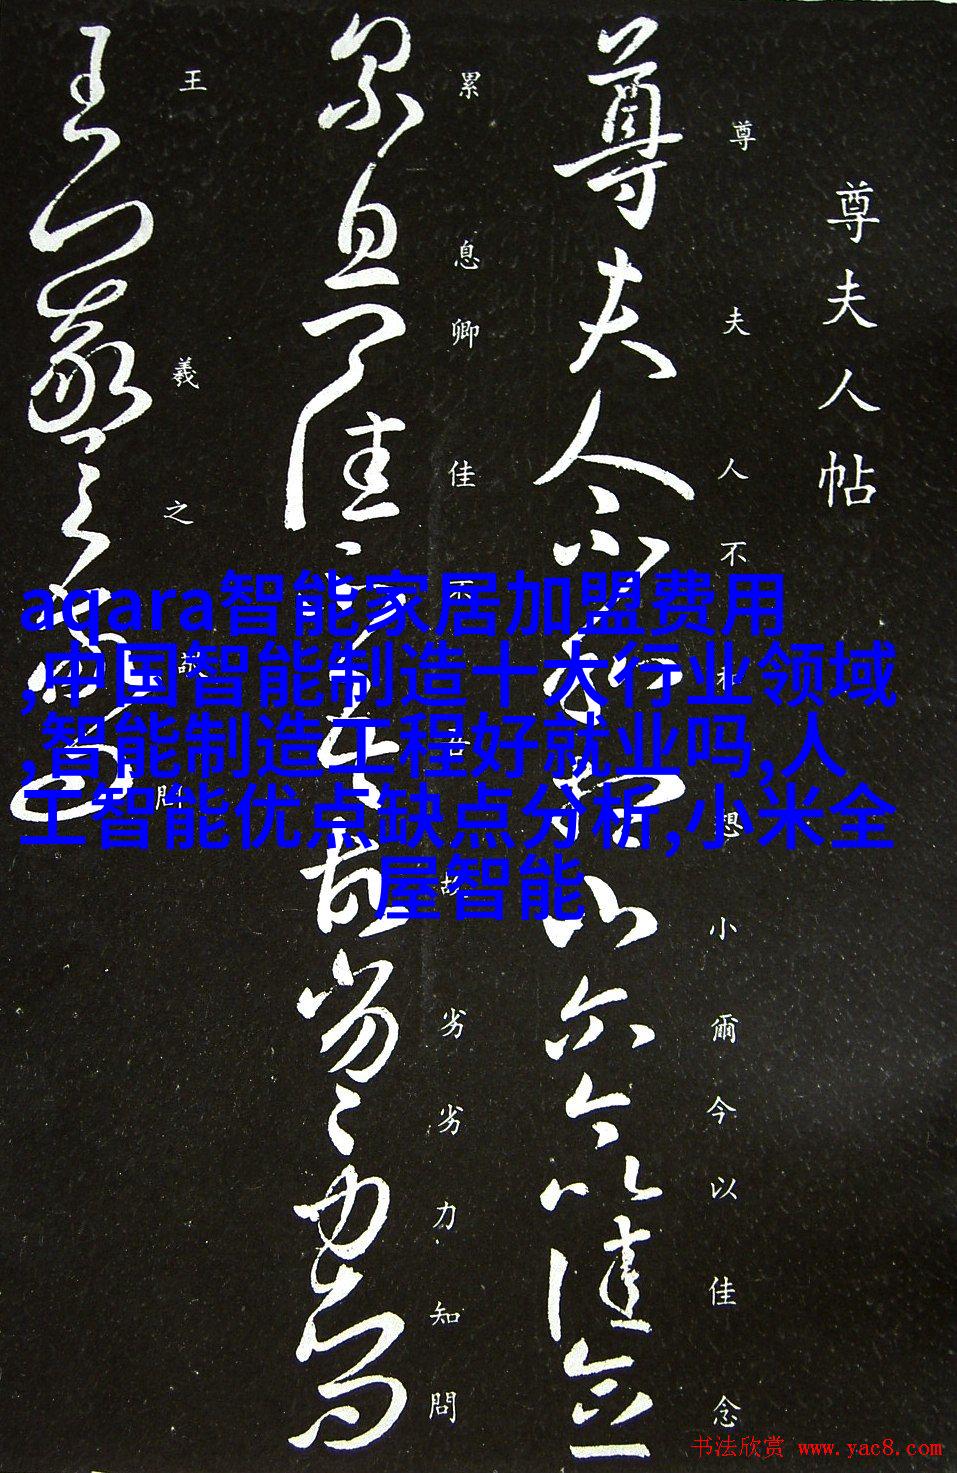 尊夫人帖
尊夫人不和想小爾今以佳念
累息卿佳不吾故劣劣力知問
王羲之敬問
aqara智能家居加盟费用
,中国智能制造十大行业领域
,智能制造工程好就业吗,人
工智能优点缺点分析,小米全
屋智能
书法欣赏 www.yac8.com